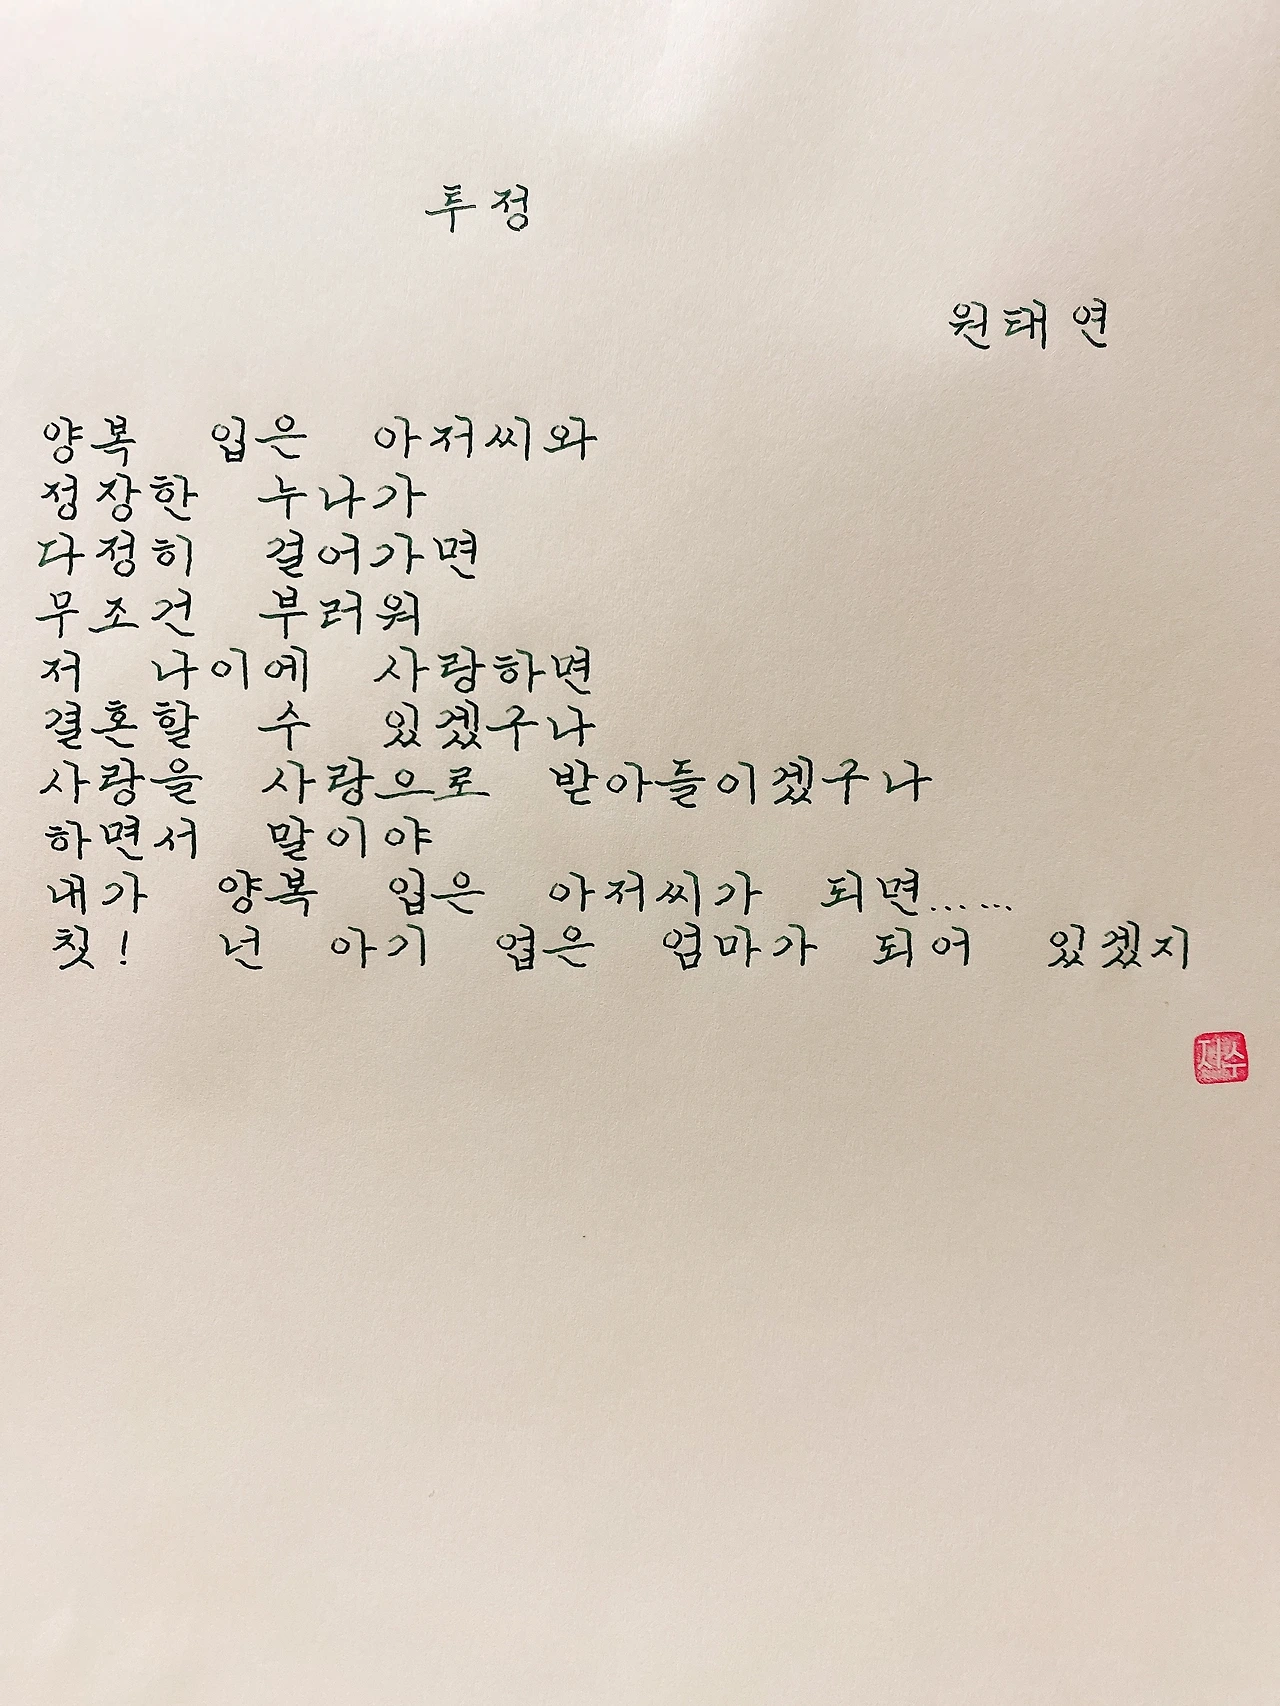 투정
원태연
양복 입은 아저씨와
정장한 누나가
다정히 걸어가면
무조건 부러워
저 나이에 사랑하면
결혼할 수 있겠구나
사랑을 사랑으로 받아들이겠구나
하면서 말이야
내가 양복 입은 아저씨가 되면……
첫! 넌 아기 엽은 엄마가 되어 있겠지